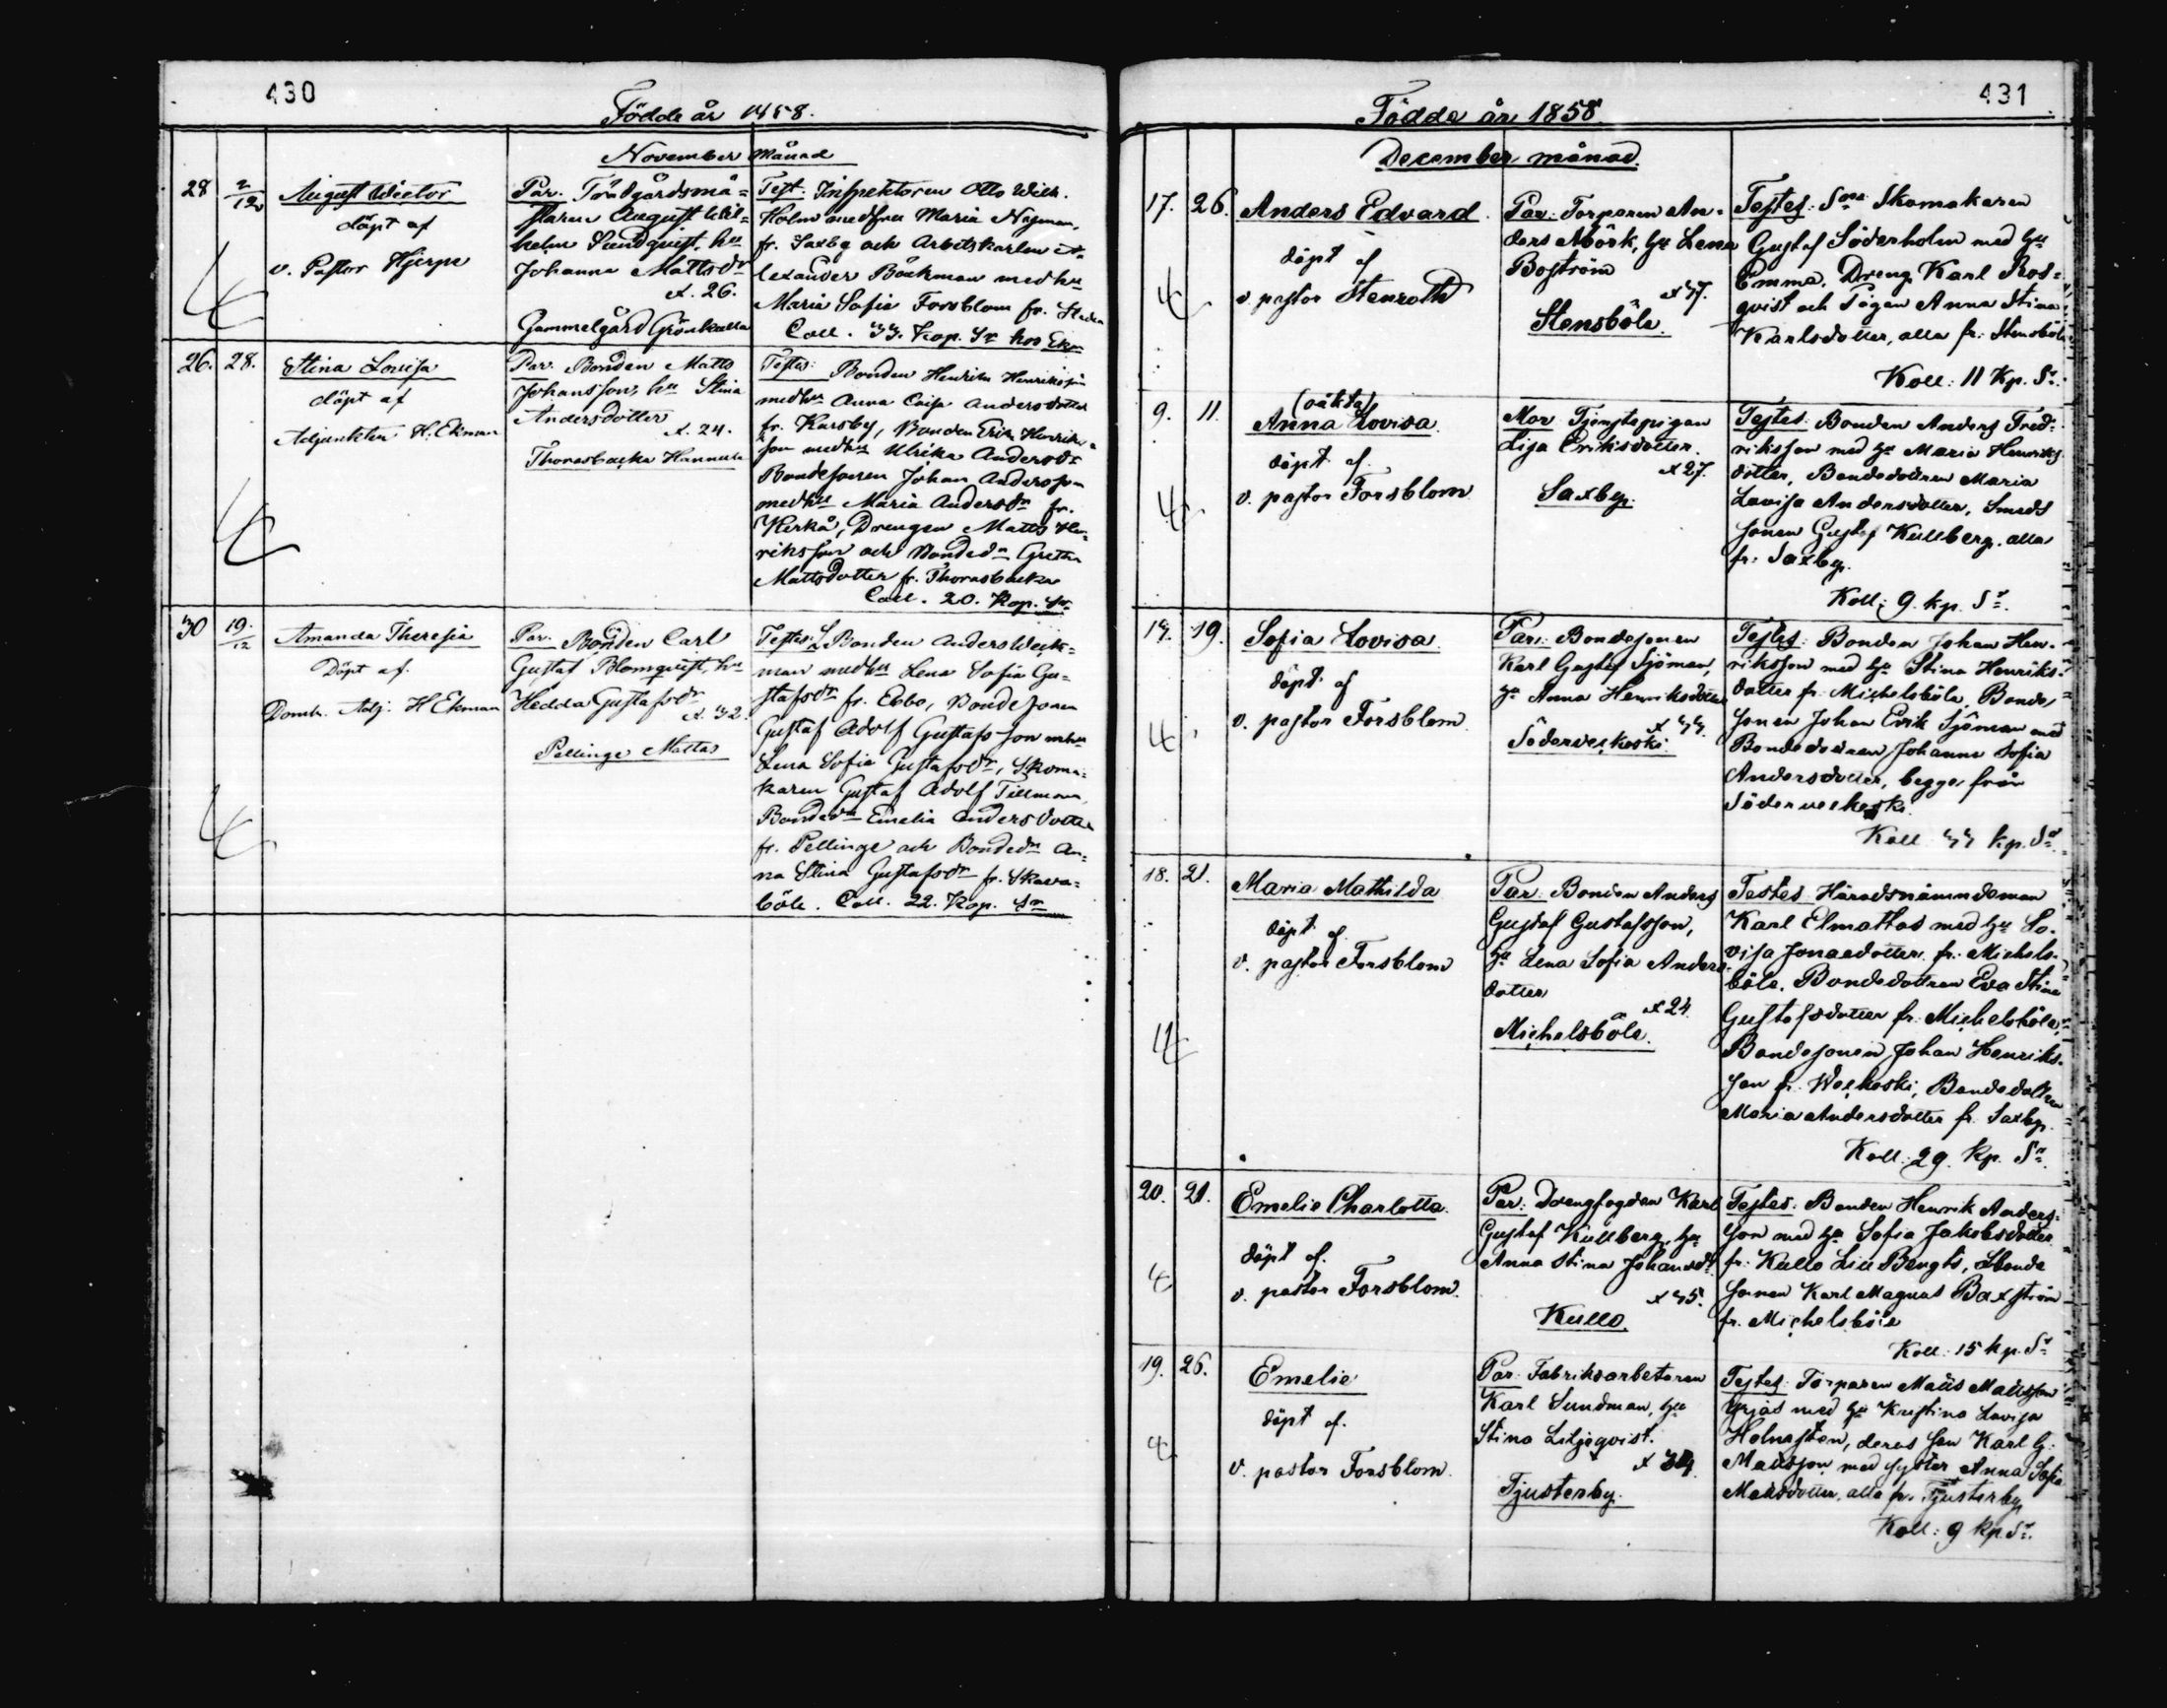 430
Födde år 1858.
November månad
28 2/12 August Wictor
döpt af
v. Pastor Hjerpe
Par. Trädgårdsmä=
staren August Wil=
helm Sundquist, hu
Johanna Mattsdr
æt. 26.
Gammelgård Grönkulla
Test. Inspektoren Otto Wilh.
Holm med fru Maria Nyman,
fr. Saxby och Arbetskarlen A=
lexander Böckman med hu
Maria Sofia Forsblom fr. Staden
Coll. 33. Kop. Sr hos Ekm
26. 28. Stina Lovisa
döpt af
Adjunkten H. Ekman
Par. Bonden Matts
Johansson, hu Stina
Andersdotter
æt. 24.
Thorasbacka Hannula
Testes: Bonden Henrik Henriksson
med hu Anna Caisa Andersdotter
fr. Karsby, Bonden Erik Henriks=
son med hu Ulrika Andersdr
Bondesonen Johan Andersson
med hu Maria Andersdr fr.
Kerkå, Drengen Matts Hen=
riksson och Bondedr Greta
Mattsdotter fr. Thorasbacka
Coll. 20. Kop. Sr
30 19/12 Amanda Theresia
Döpt af.
Domk. Adj. H Ekman
Par. Bonden Carl
Gustaf Blomquist, hu
Hedda Gustafsdr
æt. 32.
Pellinge Mattas
Testes: Bonden Anders Weck=
man med hu Lena Sofia Gu=
stafsdr fr. Ebbo, Bondesonen
Gustaf Adolf Gustafsson m hu
Lena Sofia Gustafsdr, Skoma=
karen Gustaf Adolf Tillman,
Bondedr Emelia Andersdotter
fr. Pellinge och Bondedr An=
na Stina Gustafsdr fr. Skava=
böle. Coll. 22. Kop. Sr
431
Födde år 1858.
December månad.
17. 26. Anders Edvard.
döpt af
v. pastor Stenroth
Par: Torparen An=
ders Mörk, hu Lena
Boström
æt 47.
Stensböle.
Testes: Skomakaren
Gustaf Söderholm med hu
Emma, Dreng Karl Ros=
qvist och Pigan Anna Stina
Karlsdotter, alla fr. Stensböle
Koll: 11 Kp. Sr.
9. 11. (oäkta)
Anna Lovisa.
döpt af.
v. pastor Forsblom
Mor Tjenstepigan
Lisa Eriksdotter.
æt 27.
Saxby.
Testes: Bonden Anders Fred=
riksson med hu Maria Henriks
dotter, Bondedottren Maria
Lovisa Andersdotter, Smeds
sonen Gustaf Kullberg. alla
fr. Saxby.
Koll: 9. kp. Sr.
19. Sofia Lovisa.
döpt af
v. pastor Forsblom.
Par: Bondesonen
Karl Gustaf Sjöman,
hu Anna Henriksdotter
Söderveckoski.
Testes: Bonden Johan Hen=
riksson med hu Stina Henriks=
dotter fr. Michelsböle, Bonde=
sonen Johan Erik Sjöman med
Bondedottren Johanna Sofia
Andersdotter, begge från
Söderveckoski.
Koll kp. Sr.
18. 21. Maria Mathilda
döpt af.
v. pastor Forsblom
Par: Bonden Anders
Gustaf Gustafsson,
hu Lena Sofia Anders
dotter
æt 24.
Michelsböle.
Testes: Häradsnämndeman
Karl Elmattas med hu Lo=
visa Jonaedotter fr. Michels=
böle. Bondedottren Eva Stina
Gustafsdotter fr. Michelsböle,
Bondesonen Johan Henriks=
son fr. Weckoski, Bondedottren
Maria Andersdotter fr. Saxby.
Koll: 29. kp. Sr.
20. 21. Emelie Charlotta.
döpt af.
v. pastor Forsblom.
Par: Drengfogden Karl
Gustaf Kullberg, hu
Anna Stina Johansdr
Kullo.
Testes: Bonden Henrik Anders=
son med hu Sofia Jakobsdotter
fr. Kullo Lill Bengts, Bonde
sonen Karl Magnus Baxström
fr. Michelsböle
Koll: 15 kp. Sr
19. 26. Emelie
döpt af.
v. pastor Forsblom.
Par: Fabriksarbetaren
Karl Sundman, hu
Stina Liljeqvist.
Tjusterby.
Testes: Torparen Matts Mattsson
med hu Kristina Lovisa
Holmsten, deras son Karl G.
Mattsson med syster Anna Sofia
Mattsdotter, alla fr. Tjusterby
Koll: 9 kp Sr.